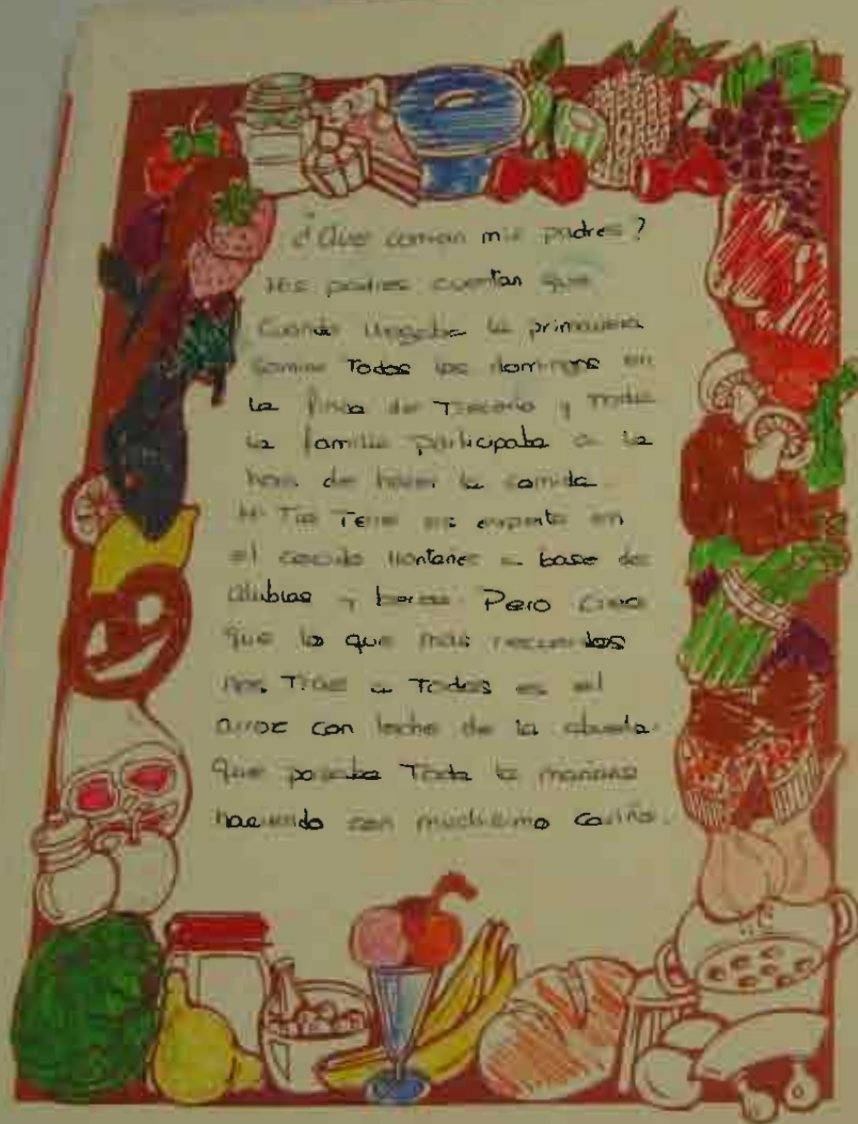 ¿Que comian mis padres?
Mis padres cuentan que
Cuando llegaba la primavera
comian Todos los domingos en
la finca de y toda
la familia participaba a la
hora de hacer la comida.
Mi Tio era experto en
el cocido Montañes a base de
alubias y Pero creo
que lo que más recuerdos
nos Trae a Todos es el
arroz con leche de la abuela
Que pasaba Toda la mañana
haciendo con muchisimo cariño.